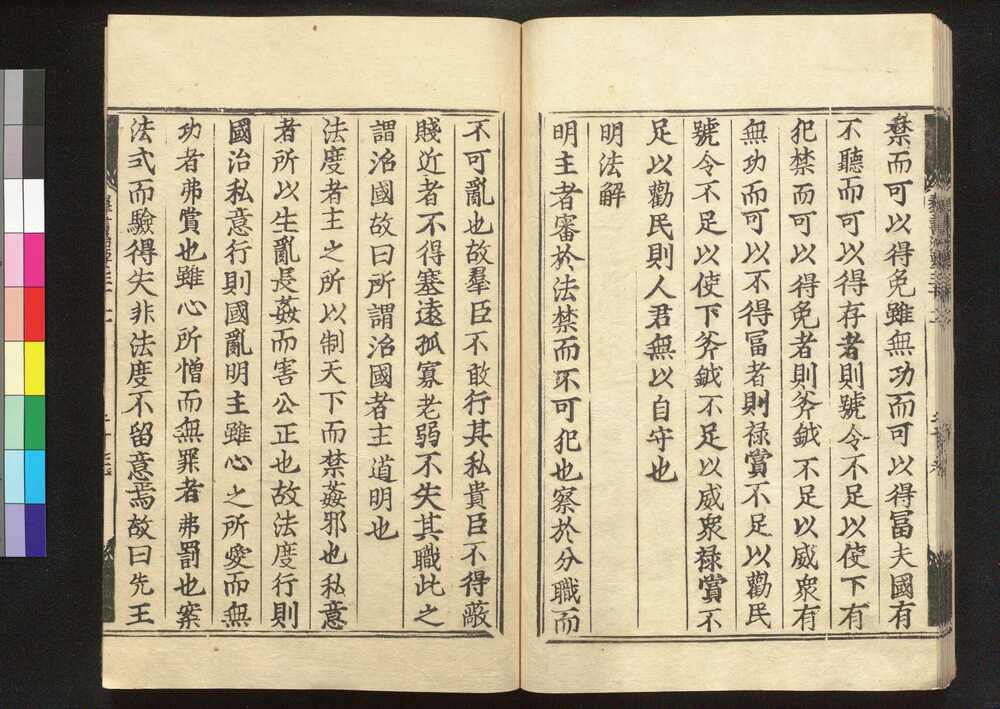 禁而可以得免雖無功而可以得冨夫國有
不聽而可以得存者則號令不足以使下有
犯禁而可以得免者則斧鉞不足以威衆有
無功而可以不得冨者則禄賞不足以勸民
號令不足以使下斧鉞不足以威衆禄賞不
足以勸民則人君無以自守也
明法解
明主者審於法禁而不可犯也察於分職而
不可亂也故羣臣不敢行其私貴臣不得蔽
賤近者不得塞遠孤寡老弱不失其職此之
謂治國故曰所謂治國者主道明也
法度者主之所以制天下而禁姦邪也私意
者所以生亂長姦而害公正也故法度行則
國治私意行則國亂明主雖心之所愛而無
功者弗賞也雖心所憎而無罪者弗罰也案
法式而驗得失非法度不留意焉故曰先王